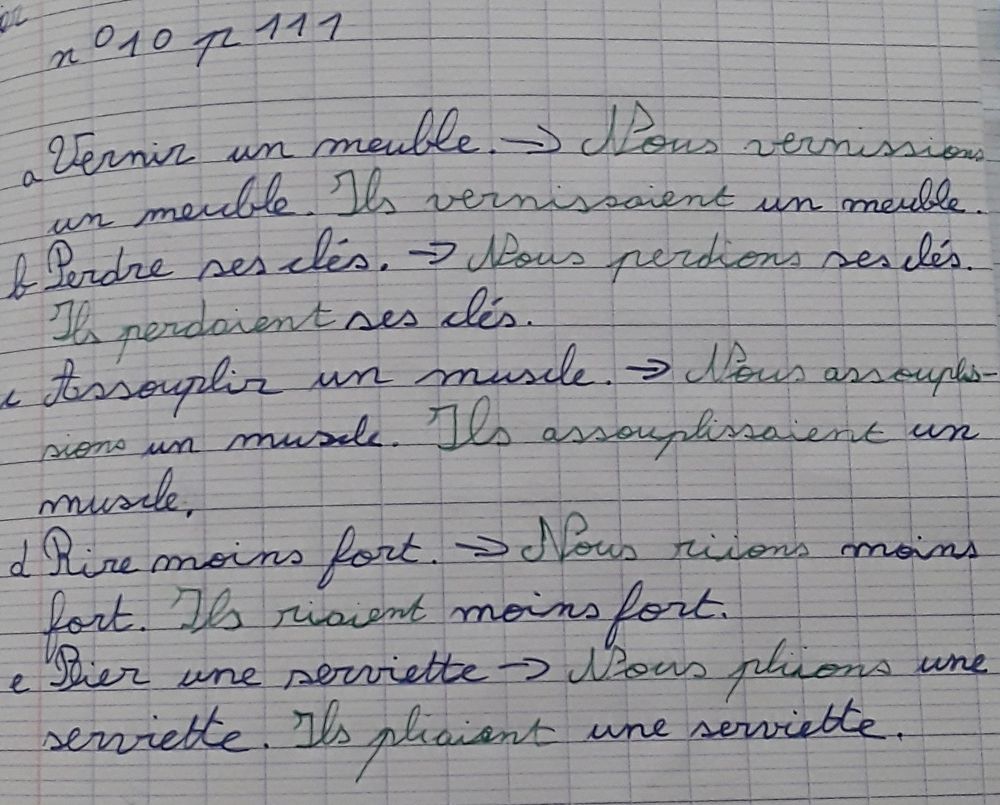 n°10 p 111
a Vernir un meuble. → Nous vernissions
un meuble. Ils vernissaient un meuble.
b Perdre ses clés. → Nous perdions ses clés.
Ils perdaient ses clés.
c Assouplir un muscle. → Nous assouplis-
sions un muscle. Ils assouplissaient un
muscle.
d Rire moins fort. → Nous riions moins
fort. Ils riaient moins fort.
e Plier une serviette → Nous pliions une
serviette. Ils pliaient une serviette.